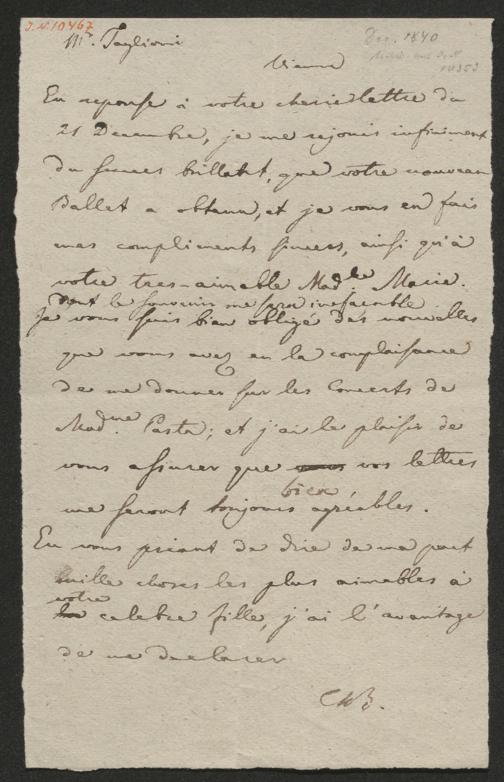 J.N. 10467
Mr. Taglioni
Dec. 1840
Vienne
En reponse à votre cherie lettre du
21 Decembre, je me rejouis infiniment
du succes brillant, que votre nouveau
Ballet a obtenu, et je vous en fais
mes compliments sinceres, ainsi qu'à
votre tres-aimable Madlle Marie.
dont le souvenir me sera ineffaceable
Je vous suis bien obligé des nouvelles
que vous avez eu la complaisance
de me donner sur les Concerts de
Madme Pasta; et j'ai le plaisir de
vous assurer que vos lettres
bien
me seront toujours agréables.
En vous priant de dire de ma part
mille choses les plus aimables à
votre
celebre fille, j'ai l'avantage
de me declarer